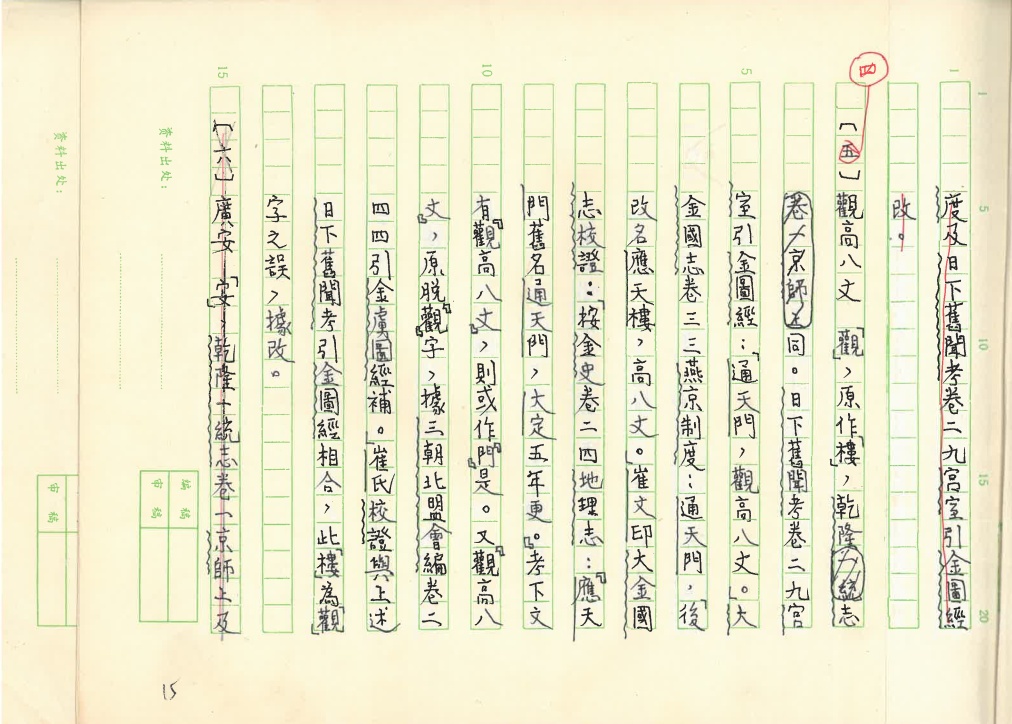 1
5
10
15
1
5
10
15
20
度及日下舊聞考卷二九宮室引金圖經
改。
四
〔五〕觀高八丈 「觀」,原作「樓」,乾隆一統志
卷一京師上同。日下舊聞考卷二九宮
室引金圖經:「通天門,觀高八丈」。大
金國志卷三三燕京制度:「通天門,後
改名應天樓,高八丈」。崔文印大金國
志校證:「按金史卷二四地理志:『應天
門舊名通天門,大定五年更。』考下文
有『觀高八丈』,則或作『門』是。又『觀高八
丈』,原脱『觀』字,據三朝北盟會編卷二
四四引金虜圖經補。」崔氏校證與上述
日下舊聞考引金圖經相合,此「樓」為「觀」
字之誤,據改。
〔六〕廣安 「安」,乾隆一統志卷一京師上及
资料出处:
编稿
审稿
资料出处:
审稿
15